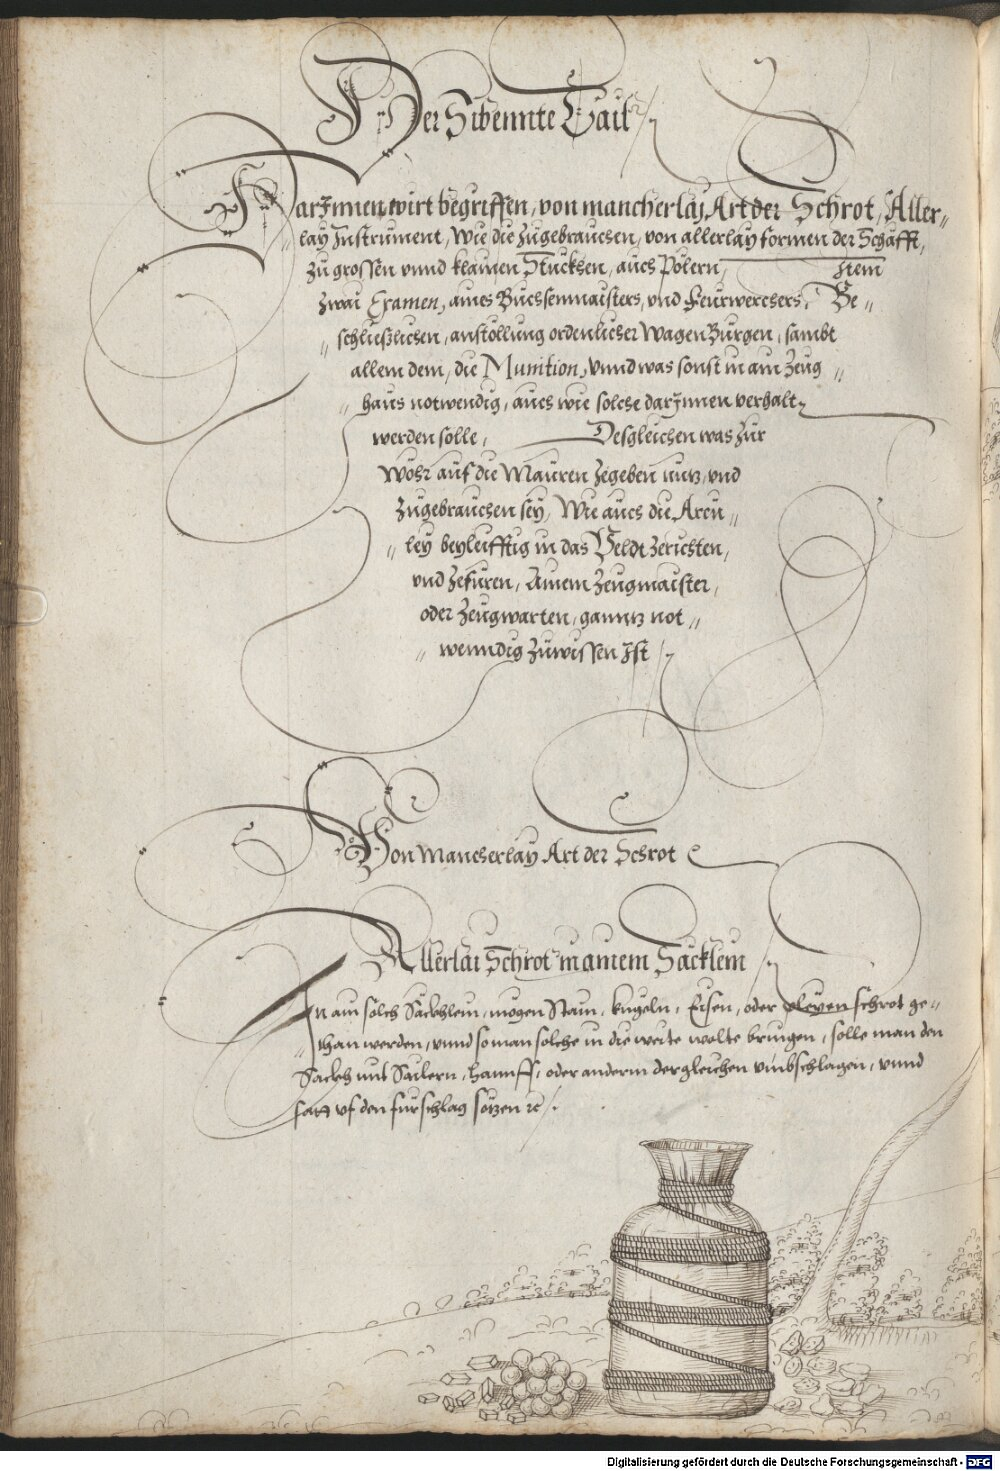 Der Sibennte Tail
Darjnnen wirt begriffen, von mancherlaj Art der Schrot, Aller-
lay Instrument, Wie die zugebrauchen, von allerlay formen der Schäfft,
zu grossen vnnd klainen Stuckhen, auch Pölern, Item
zwai Examen, aines Buchsenmaisters, vnd Feurwerckhers. Be-
schließlichen, anstöllung ordenlicher Wagen Burgen, sambt
allem dem, die Munition, vnnd was sonst in ain Zeug
haus notwendig, auch wie solche darjnnen verhalt
werden solle, Desgleichen was zur
Wöhr auf die Mauren zegeben nutz, vnd
zugebrauchen sey, Wie auch die Arcu-
ley beyleifftig in das Veldt zerichten,
vnd zefüren, Ainem Zeugmaister,
oder Zeugwarten, ganntz not-
wenndig zuwissen Ist.
Von Mancherlay Art der Schrot
Allerlai Schrot in ainem Säcklein
In ain solch Säckhlein, mögen Stain, kugeln, Eisen, oder pleyen schrot ge-
than werden, vnnd so man solche in die weite wolte bringen, solle man den
Sackh mit Sailern, hannff, oder anderm dergleichen vmbschlagen, vnnd
satt vf den fürschlag sötzen ꝛc.
Digitalisierung gefördert durch die Deutsche Forschungsgemeinschaft - DFG